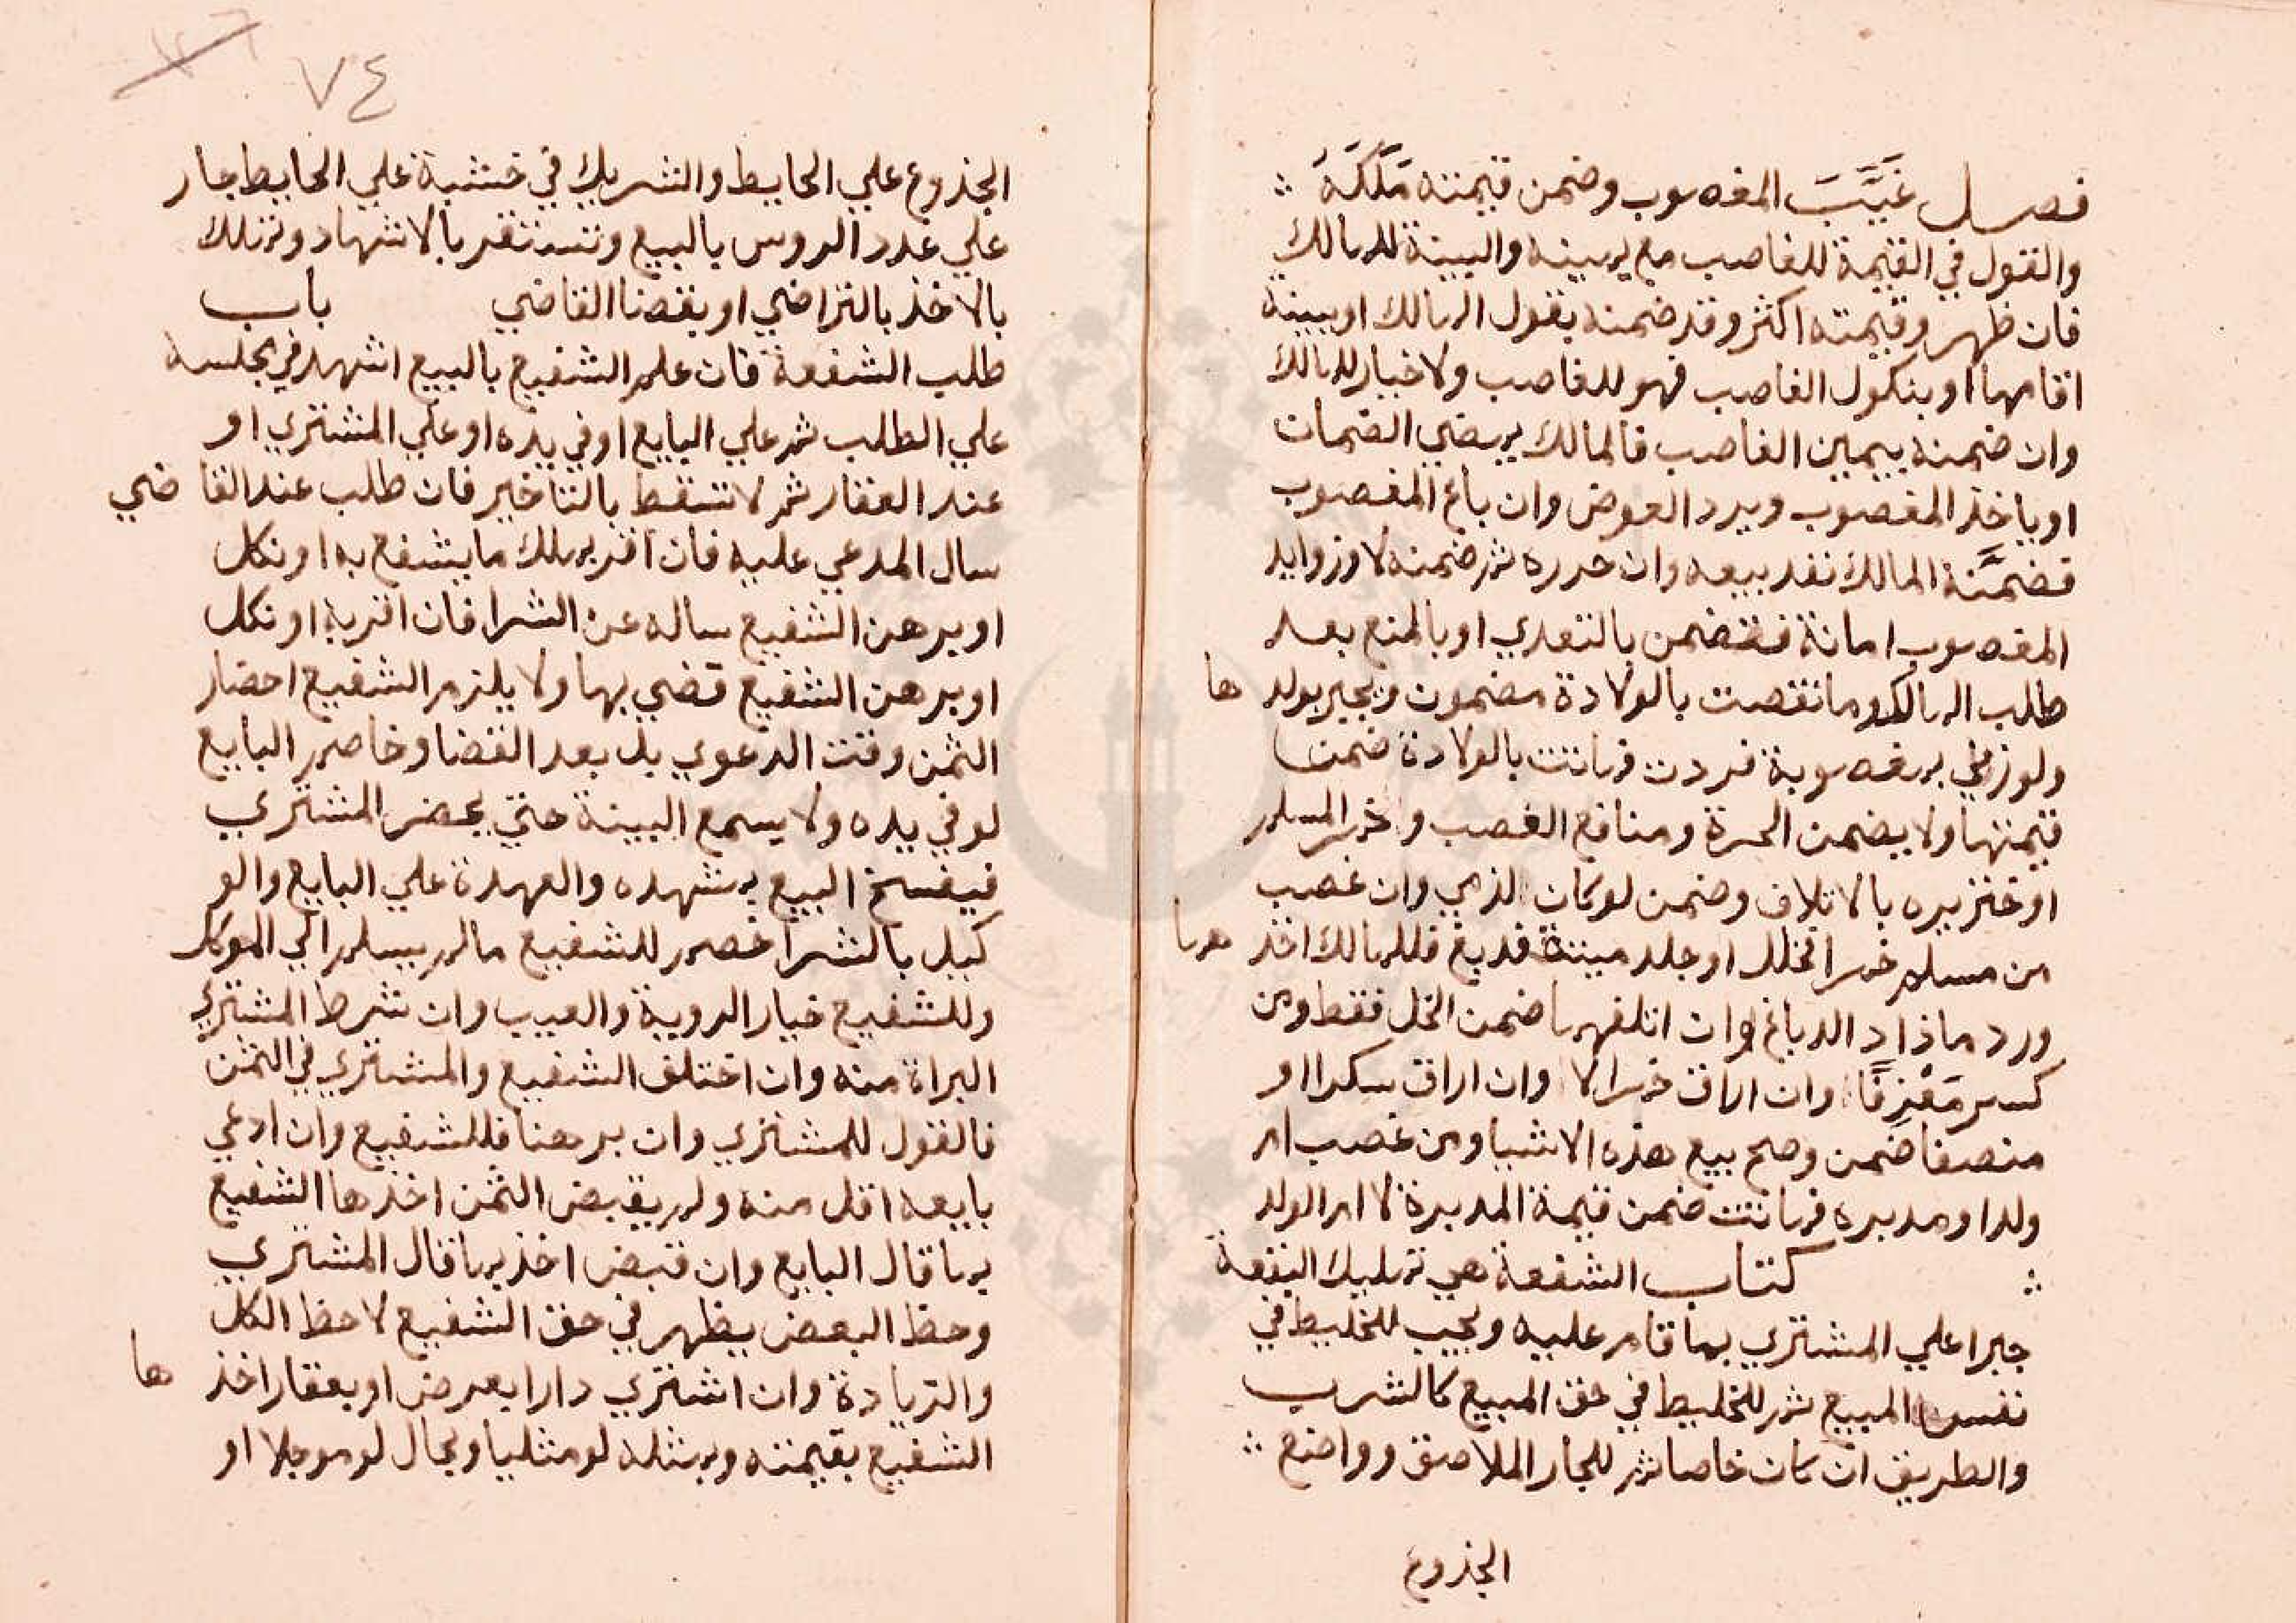 فصل غَيَّبَ المغصوب وضمن قيمته مَلَكَهُ
والقول في القيمة للغاصب مع يمينه والبينة للمالك
فان ظهر وقيمته اكثر وقد ضمنه بقول المالك او ببينة
اقامها او بنكول الغاصب فهو للغاصب ولا خيار للمالك
وان ضمنه بيمين الغاصب فالمالك يمضي الضمان
او ياخذ المغصوب ويرد العوض وان باع المغصوب
فضمَّنه المالك نفد بيعه وان حرره ثم ضمنه لا وزوايد
المغصوب امانة فتضمن بالتعدي او بالمنع بعد
طلب المالك وما نقصت بالولادة مضمون ويجبر بولدها
ولو زني بمغصوبة فردت فماتت بالولادة ضمن
قيمتها ولا يضمن الحرة ومنافع الغصب وخمر المسلم
او خنزيره بالاتلاف وضمن لو كان لذمي وان غصب
من مسلم خمرا فخلل او جلد ميتة فدبغ فللمالك اخذهما
ورد ما زاد الدباغ وان اتلفهما ضمن الخل فقط ومن
كسر مَعْزِفًا وان اراق خمرا لا وان اراق سكرا او
منصفا ضمن وصح بيع هذه الاشيا ومن غصب ام
ولد او مدبره فماتت ضمن قيمة المدبرة لا ام الولد
كتاب الشفعة هي تمليك البقعة
جبرا علي المشتري بما قام عليه وتجب للخليط في
نفس المبيع ثم للخليط في حق المبيع كالشرب
والطريق ان كان خاصا ثم للجار الملاصق وواضع
الجذوع
٧٤
الجذوع علي الحايط والشريك في خشبة علي الحايط جار
علي عدد الروس بالبيع وتستقر بالاشهاد وتملك
بالاخذ بالتراضي او بقضا القاضي باب
طلب الشفعة فان علم الشفيع بالبيع اشهد في مجلسه
علي الطلب ثم علي البايع او في يده او علي المشتري او
عند العقار ثم لا تسقط بالتاخير فان طلب عند القاضي
سال المدعي عليه فان اقر بملك ما يشفع به او نكل
او برهن الشفيع ساله عن الشرا فان اقر به او نكل
او برهن الشفيع قضي بها ولا يلزم الشفيع احضار
الثمن وقت الدعوي بل بعد القضا وخاصم البايع
لو في يده ولا يسمع البينة حتي يحضر المشتري
فيفسخ البيع بمشهده والعهدة علي البايع والو
كيل بالشرا خصم للشفيع ما لم يسلم الي الموكل
وللشفيع خيار الروية والعيب وان شرط المشتري
البراة منه وان اختلف الشفيع والمشتري في الثمن
فالقول للمشتري وان برهنا فللشفيع وان ادعي
بايعه اقل منه ولم يقبض الثمن اخذها الشفيع
بما قال البايع وان قبض اخذ بما قال المشتري
وحط البعض يظهر في حق الشفيع لا حط الكل
والزيادة وان اشتري دارا بعرض او بعقار اخذها
الشفيع بقيمته وبمثله لو مثليا وبحال لو موجلا او